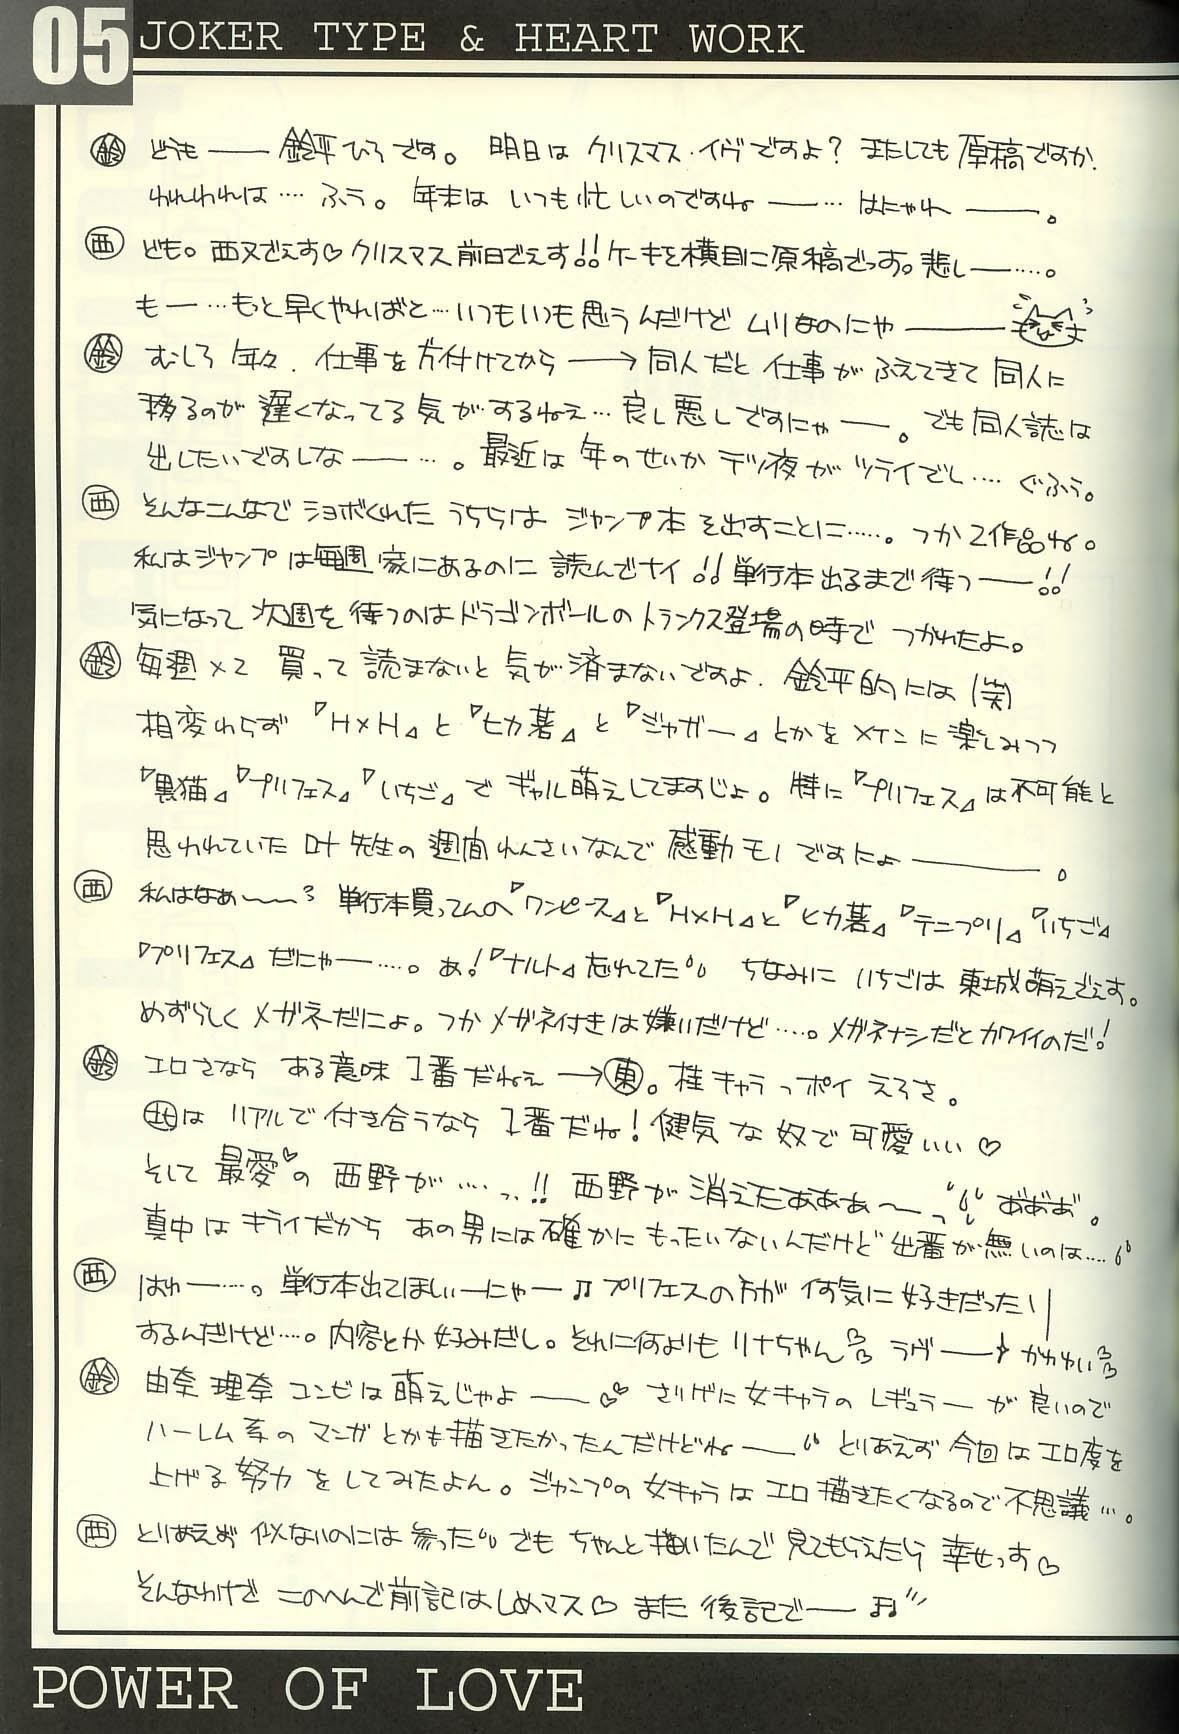 05
JOKER TYPE & HEART WORK
鈴 どうも── 鈴平ひろです。 明日は クリスマス・イヴですよ? またしても 原稿ですか.
われわれは…. ふぅ。 年末は いつも忙しいのですね──… はにゃわ──。
西 ども。西又でえす♡ クリスマス前日でえす!! ケーキを横目に原稿でっす。悲し──….。
も─ …もっと早くやればと…いつもいつも思うんだけど ムリなのにゃ───
鈴 むしろ 年々. 仕事を方付けてから ──→ 同人だと 仕事が ふえてきて 同人に
移るのが 遅くなってる気がするねえ… 良し悪しですにゃ──。でも同人誌は
出したいですしな── ….。最近は 年のせいか テツ夜が ツライでし…. ぐふぅ。
西 そんなこんなで ショボくれた うちらは ジャンプ本 を出すことに…..。つか 2作品ね。
私はジャンプは毎週 家にあるのに 読んでナイ!! 単行本出るまで待つ──!!
気になって 次週を待つのはドラゴンボールの トランクス登場の時で つかれたよ。
鈴 毎週×2 買って 読まないと 気が済まないですよ. 鈴平的には (笑)
相変わらず 『H×H』と『ヒカ碁』と『ジャガー』とかをメインに楽しみつつ
『黒猫』『プリフェス』『いちご』で ギャル萌えしてますじょ。特に『プリフェス』は不可能と
思われていた 叶先生の 週間れんさいなんで 感動モノですにょ───。
西 私はなぁ〜〜? 単行本買ってんの『ワンピース』と『H×H』と『ヒカ碁』『テニプリ』『いちご』
『プリフェス』だにゃ──….。あ!『ナルト』忘れてた ちなみに いちごは 東城萌えでえす。
めずらしく メガネだにょ。つかメガネ付きは嫌いだけど….。メガネナシだとカワイイのだ!
鈴 エロさなら ある意味 1番だねぇ ─→ 東。桂キャラっポイ えろさ。
北は リアルで付き合うなら 1番だね! 健気な奴で可愛いい♡
そして 最愛♡の 西野が ….っ!! 西野が 消えたあああ〜っ あ゛あ゛あ゛。
真中は キライだから あの男には確かに もったいないんだけど 出番が無いのは….
西 はわ──….。単行本出てほしぃーにゃー♫ プリフェスの方が 何気に好きだったり
するんだけど….。内容とか好みだし。それに何よりも リナちゃん ラヴ── かわいい
鈴 由奈 理奈 コンビは 萌えじゃよ──♡♡ さりげに女キャラの レギュラーが 良いので
ハーレム系の マンガとかも描きたかったんだけどね── とりあえず 今回は エロ度を
上げる 努力をしてみたよん。ジャンプの女キャラは エロ描きたくなるので不思議…。
西 とりあえず 似ないのには参った でも ちゃんと描いたんで 見てもらえたら 幸せっす♡
そんなわけで このへんで前記はしめマス♡ また 後記で── ♫
POWER OF LOVE